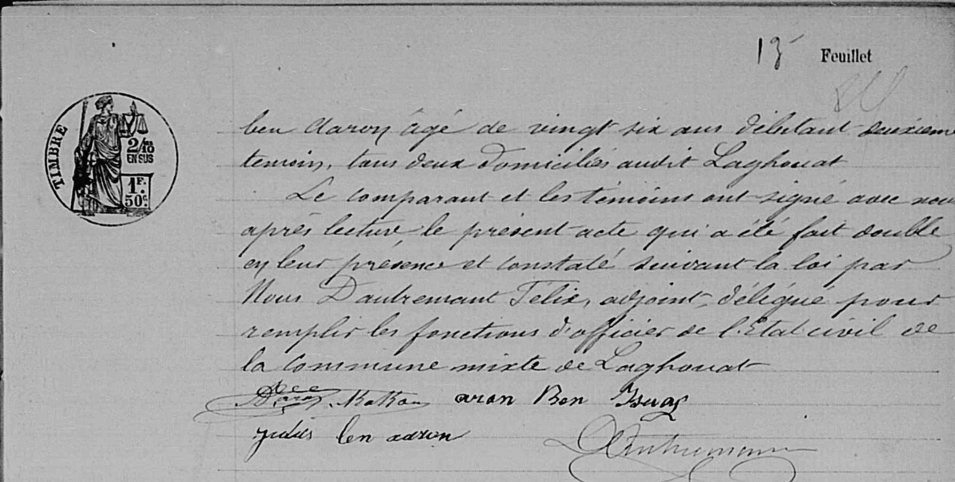 13 Feuillet
TIMBRE
2/10 EN SUS
1F. 50c
ben Aaron âgé de vingt six ans débitant deuxième
temoin, tous deux domiciliés audit Laghouat
Le comparant et les témoins ont signé avec nous
après lecture le présent acte qui a été fait double
en leur présence et constaté suivant la loi par
Nous Dautremant Felix, adjoint, délégué pour
remplir les fonctions d'officier de l'Etat civil de
la Commune mixte de Laghouat
aron Ben
ben aaron